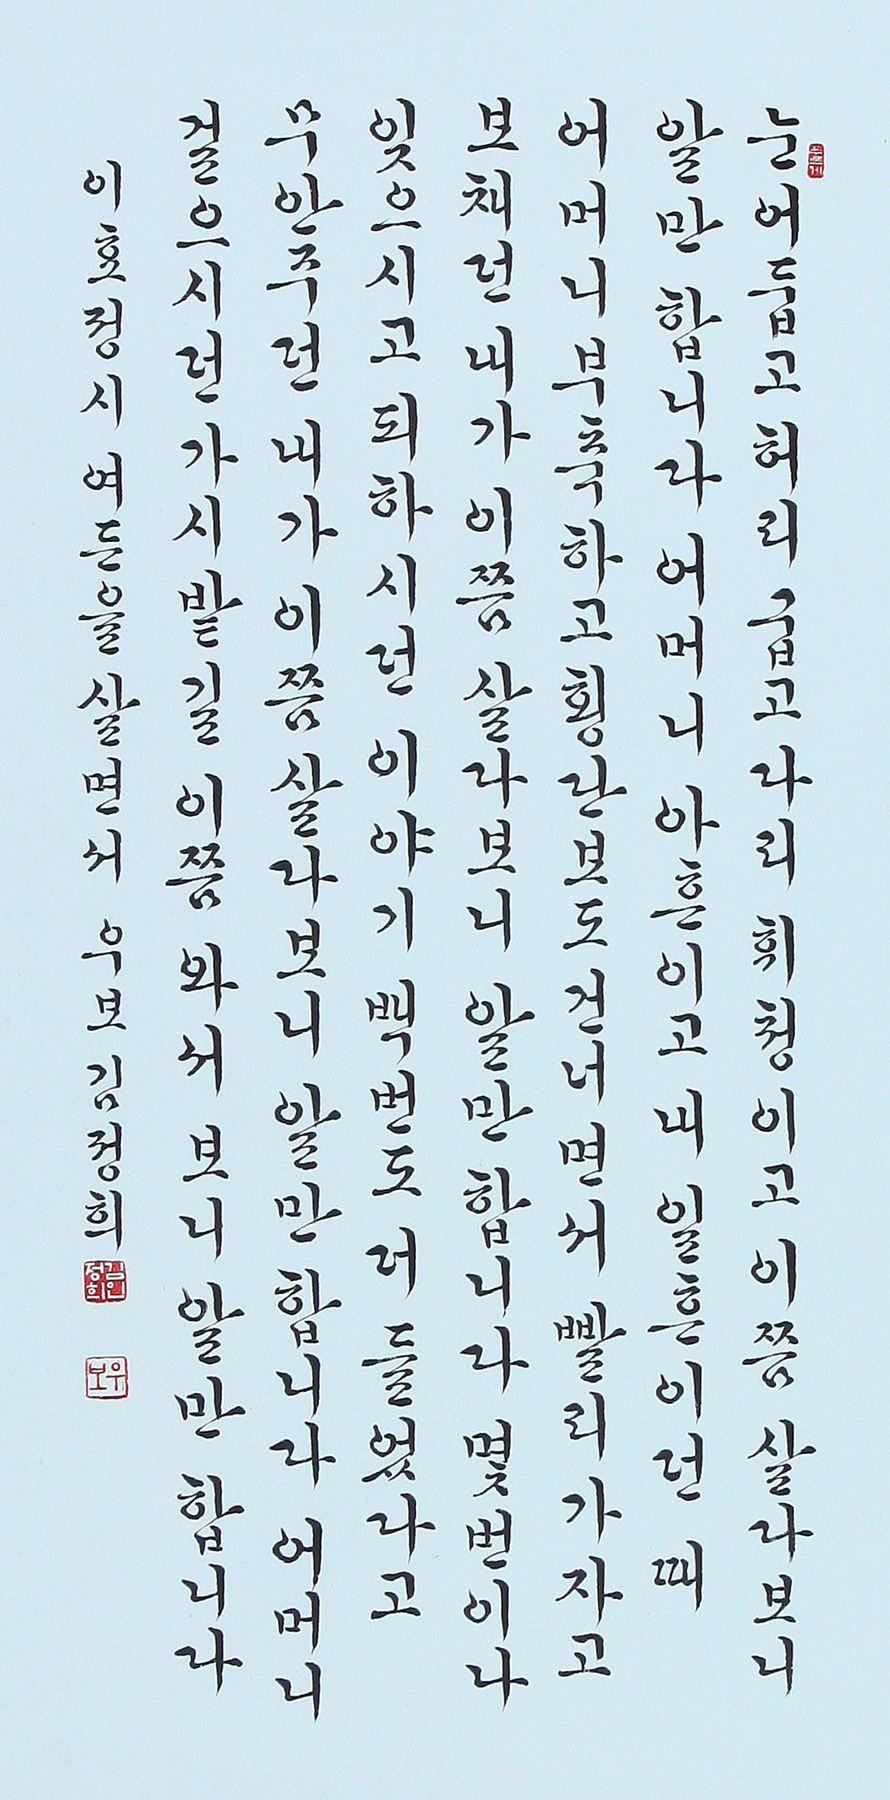 눈 어둡고 허리 굽고 다리 휘청이고 이쯤 살다보니
알만 합니다 어머니 아흔이고 내 일흔이던 때
어머니 부축하고 횡단보도 건너면서 빨리 가자고
보채던 내가 이쯤 살다보니 알만 합니다 몇번이나
잊으시고 되하시던 이야기 백번도 더 들었다고
무안주던 내가 이쯤 살다보니 알만 합니다 어머니
걸으시던 가시밭길 이쯤 와서 보니 알만 합니다
이효정시 여든을 살면서 우보 김정희
김인정희
우보